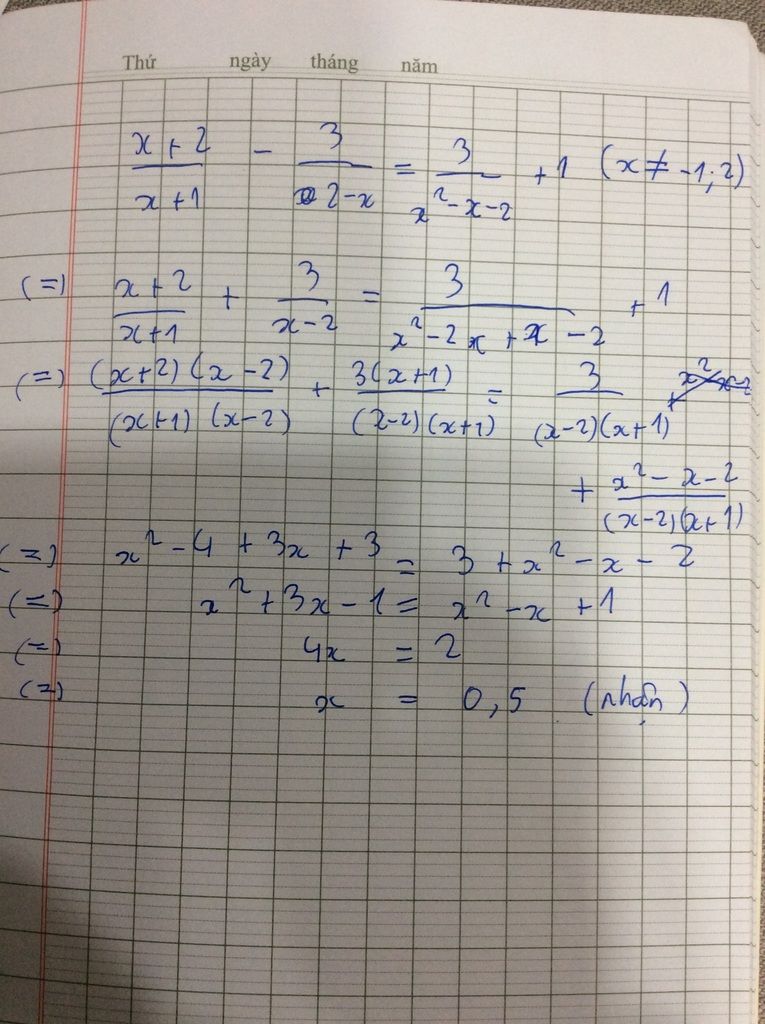 Thứ ngày tháng năm
(x+2)/(x+1) - 3/(2-x) = 3/(x²-x-2) + 1 (x ≠ -1; 2)
(=) (x+2)/(x+1) + 3/(x-2) = 3/(x²-2x+x-2) + 1
(=) (x+2)(x-2)/(x+1)(x-2) + 3(x+1)/(x-2)(x+1) = 3/(x-2)(x+1)
+ (x²-x-2)/(x-2)(x+1)
(=) x²-4+3x+3 = 3+x²-x-2
(=) x²+3x-1 = x²-x+1
(=) 4x = 2
(=) x = 0,5 (nhận)